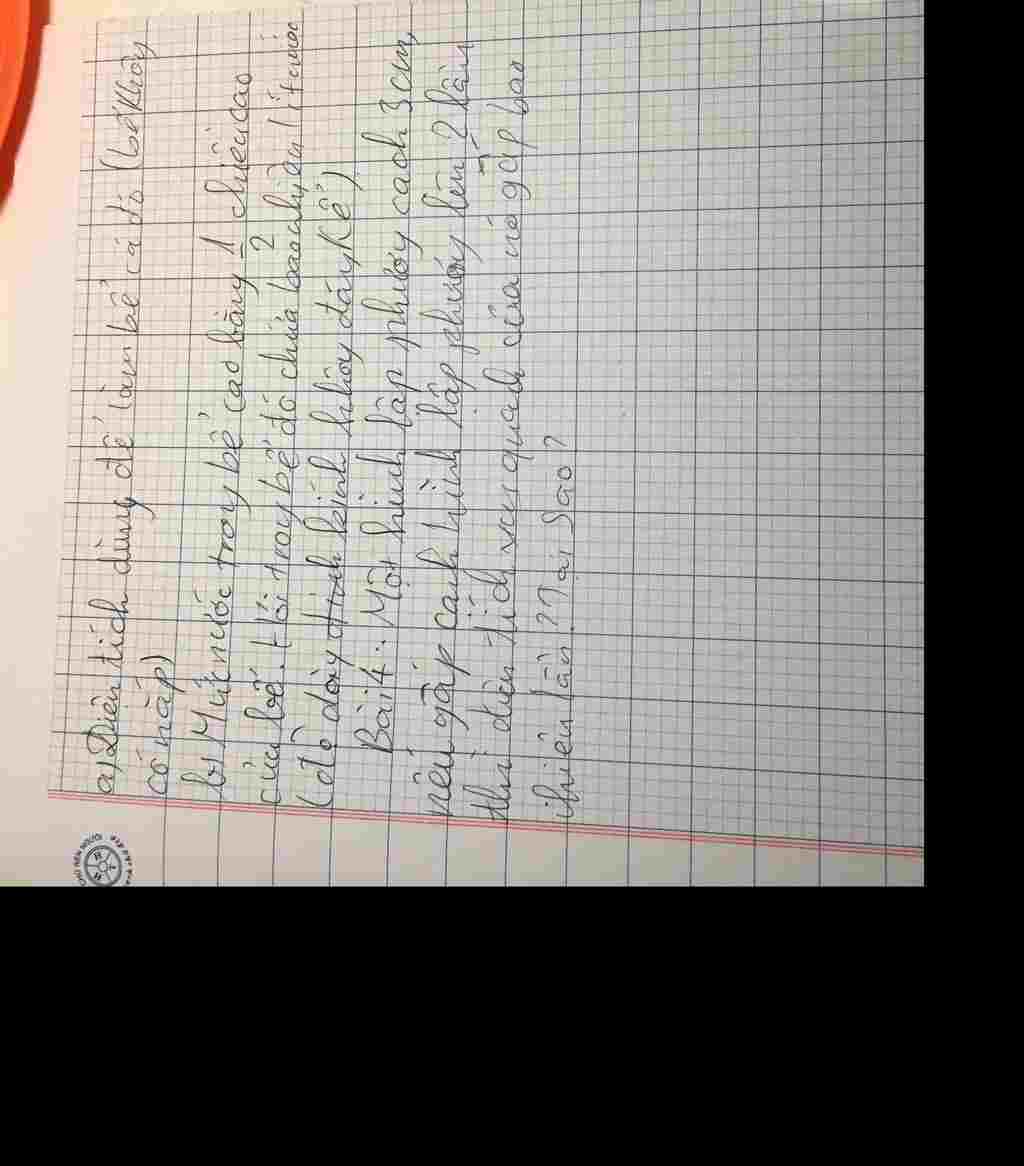 a) Diện tích dùng để làm bể cá đó (bể không
có nắp)
b) Mức nước trong bể cao bằng 1/2 chiều cao
của bể. Hỏi trong bể đó chứa bao nhiêu lít nước
(độ dày kính không đáng kể)
Bài 4: Một hình lập phương cạch 3cm,
nếu gấp cạnh hình lập phương lên 2 lần
thì diện tích xung quanh của nó gấp bao
nhiêu lần? Tại sao?